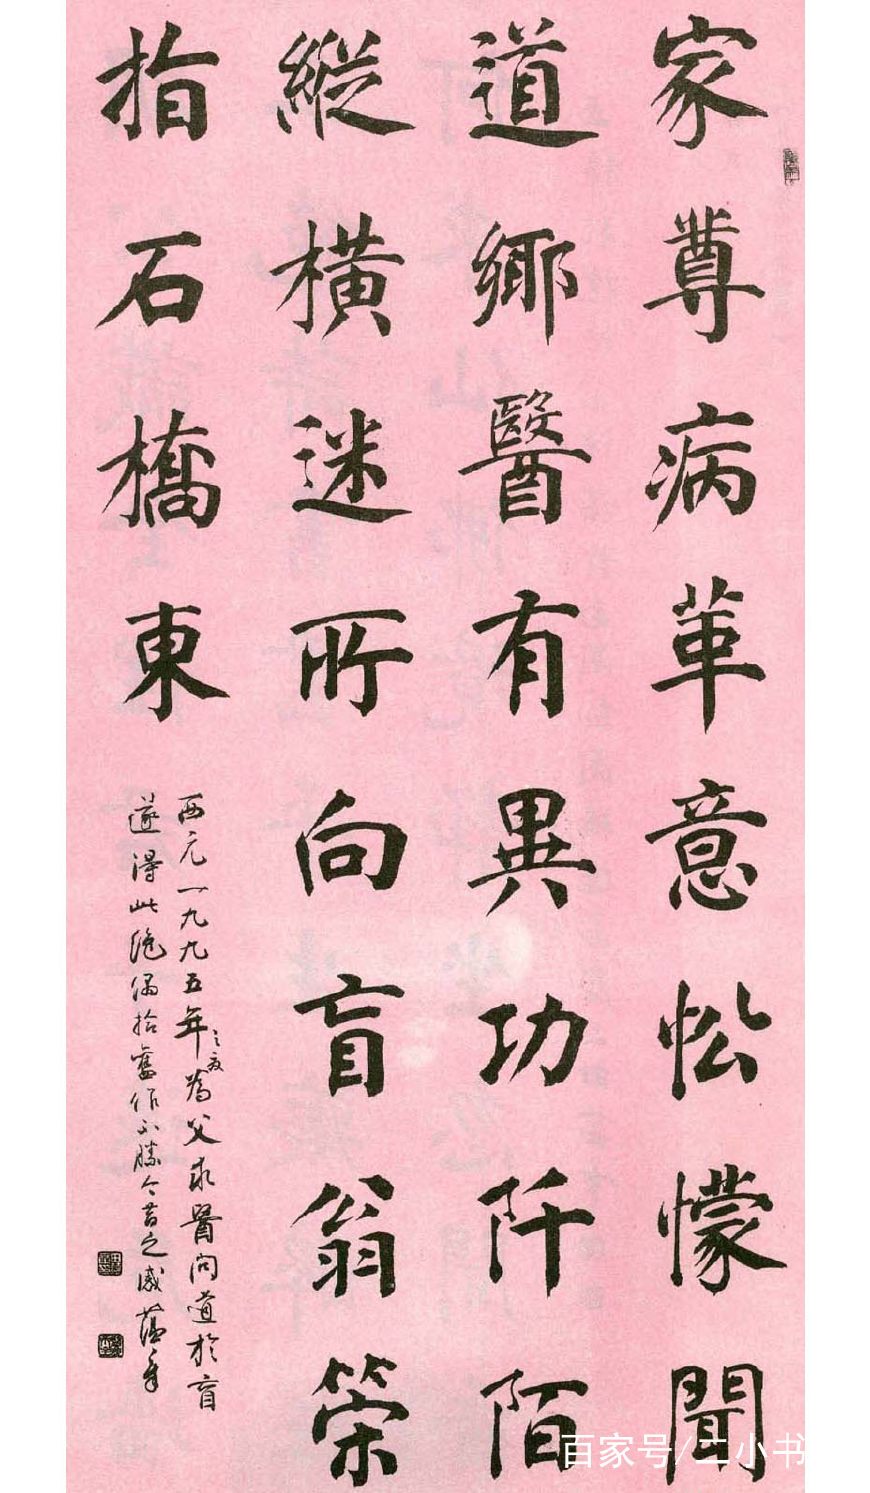 家尊病革意忪懞聞
道鄉醫有異功阡陌
縱橫迷所向盲翁策
指石橋東
西元一九九五年之夜為父求醫問道於盲
遂得此絕偶拾舊作不勝今昔之感蘊手
百家号/二小书